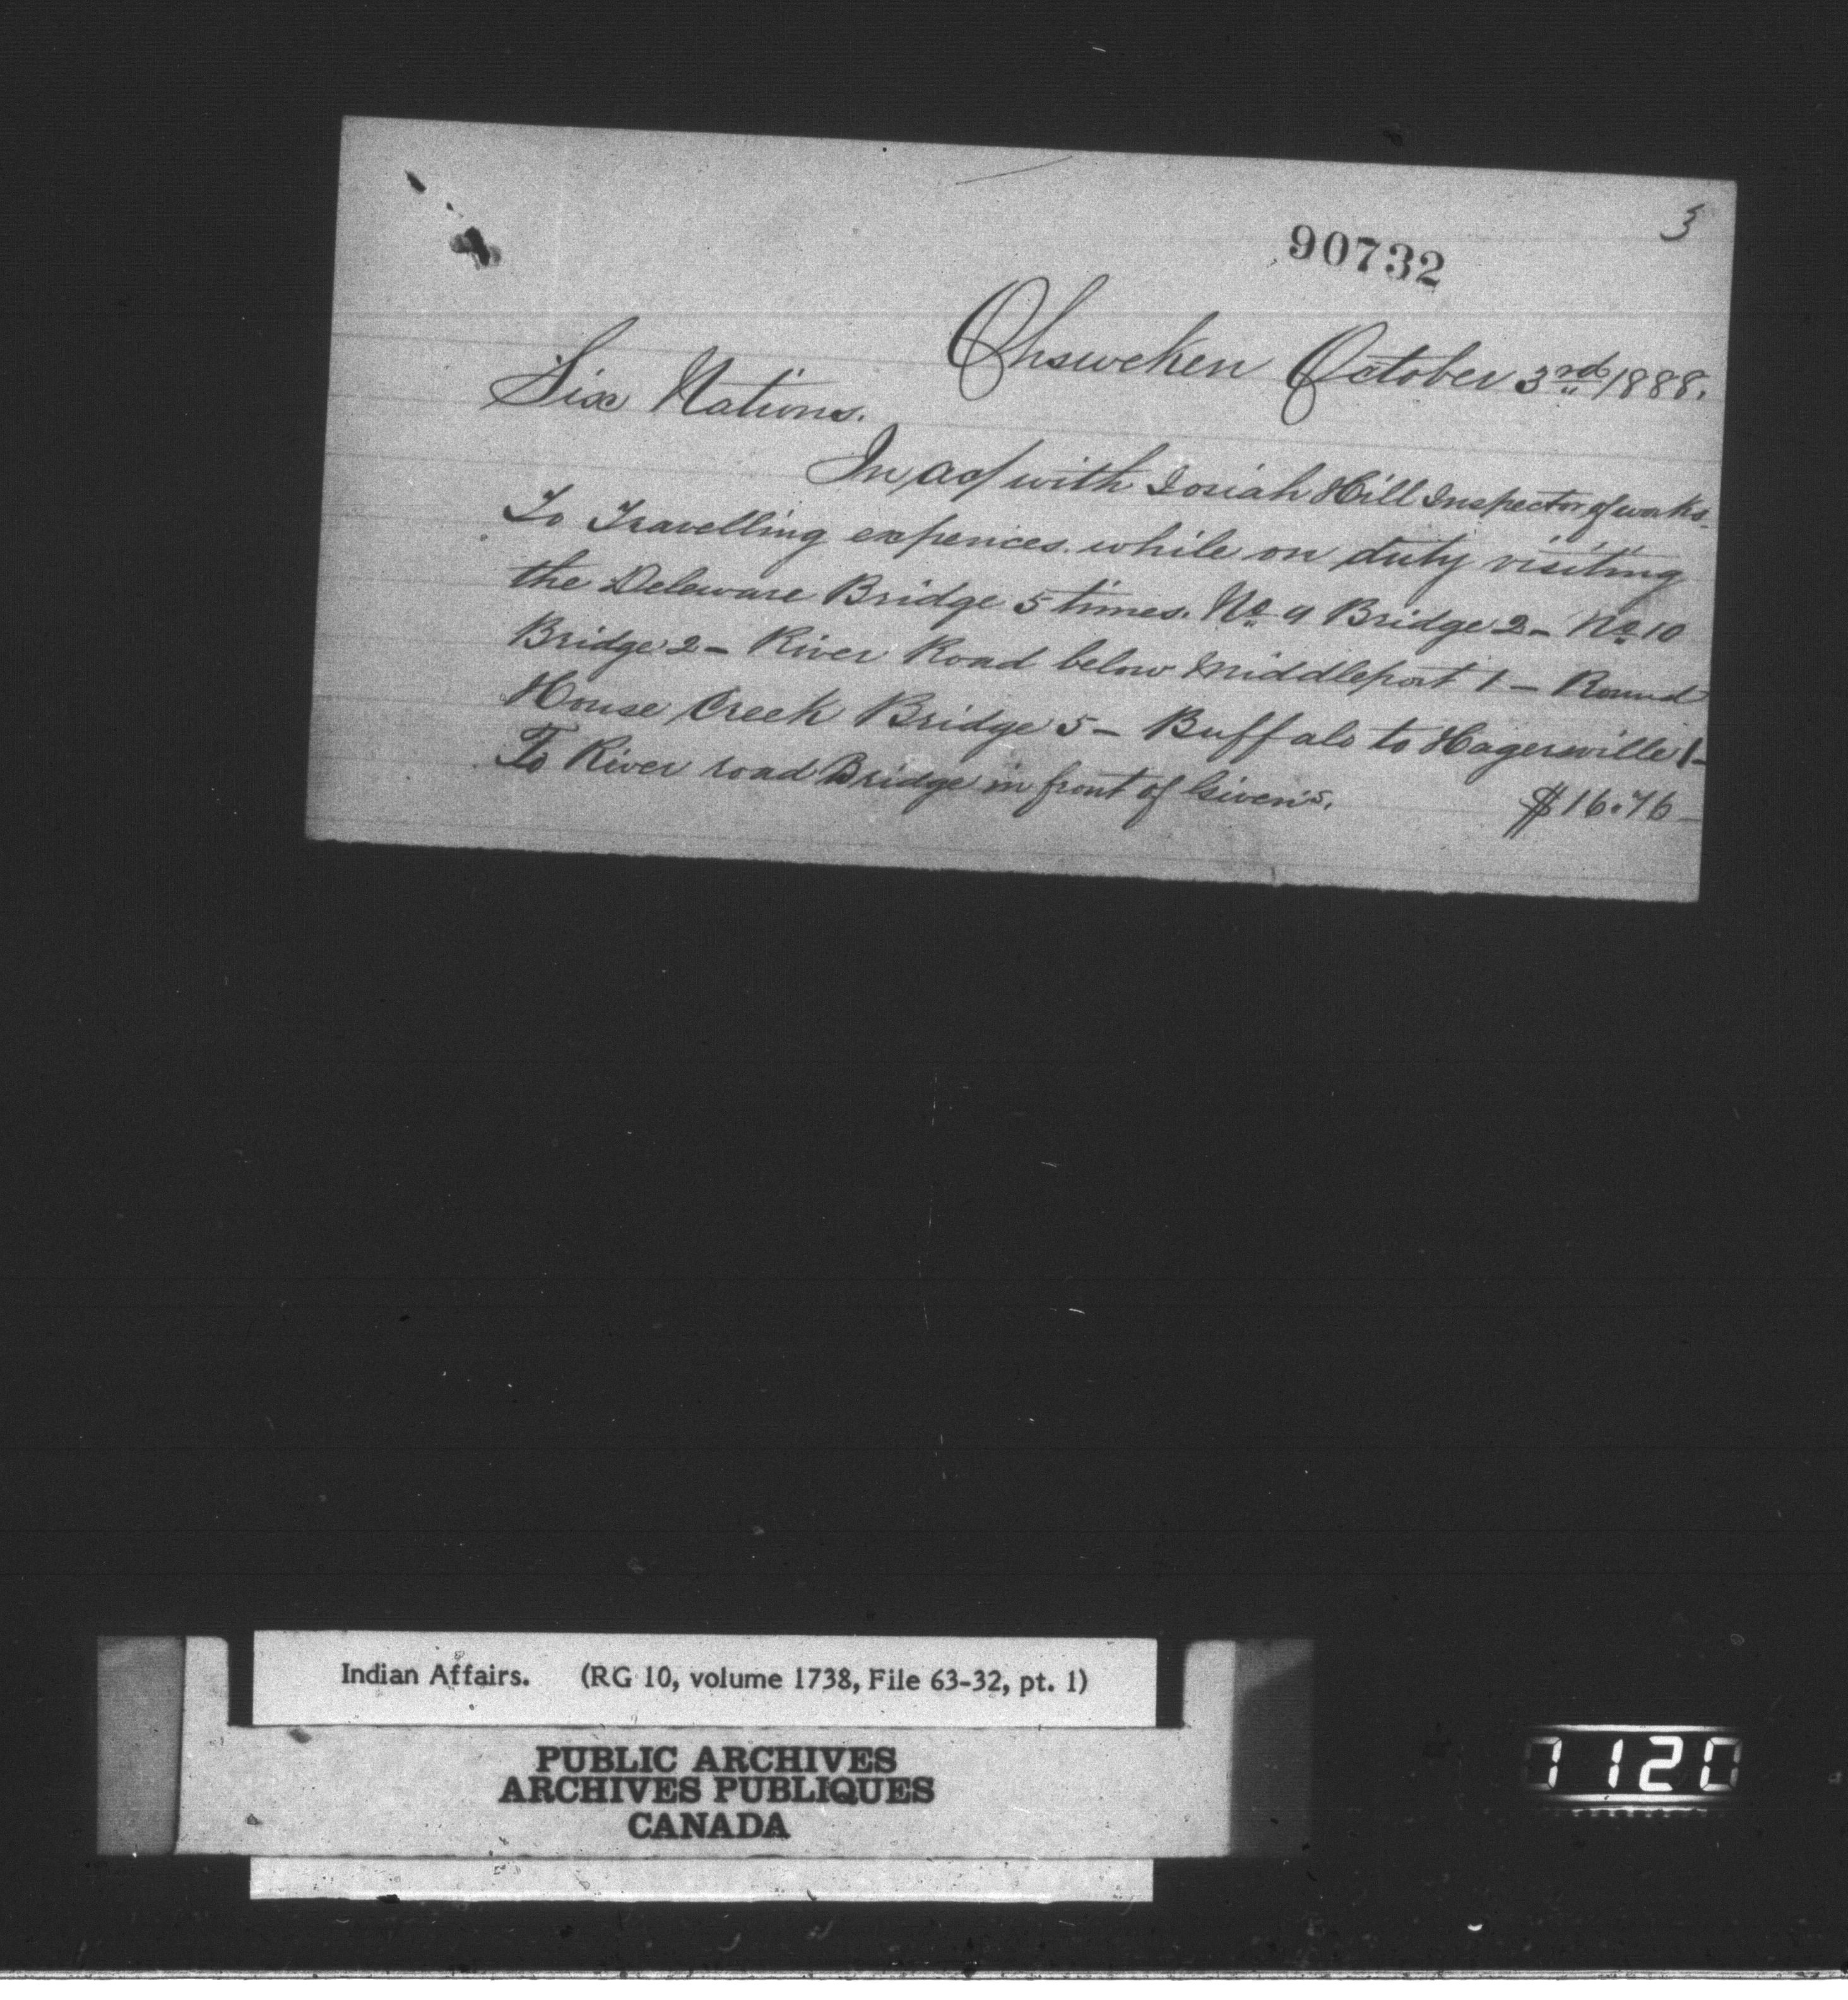 3
90732
Ohsweken October 3rd 1888.
Six Nations.
In ac/ with Josiah Hill Inspector of works.
To Travelling expences while on duty visiting
the Deleware Bridge 5 times. No 9 Bridge 2 - No 10
Bridge 2 - River Road below Middleport 1 - Round
House Creek Bridge 5 - Buffalo to Hagersville 1 -
To River road Bridge in front of Given's.   $16.76
Indian Affairs. (RG 10, volume 1738, File 63-32, pt. 1)
PUBLIC ARCHIVES
ARCHIVES PUBLIQUES
CANADA
1120